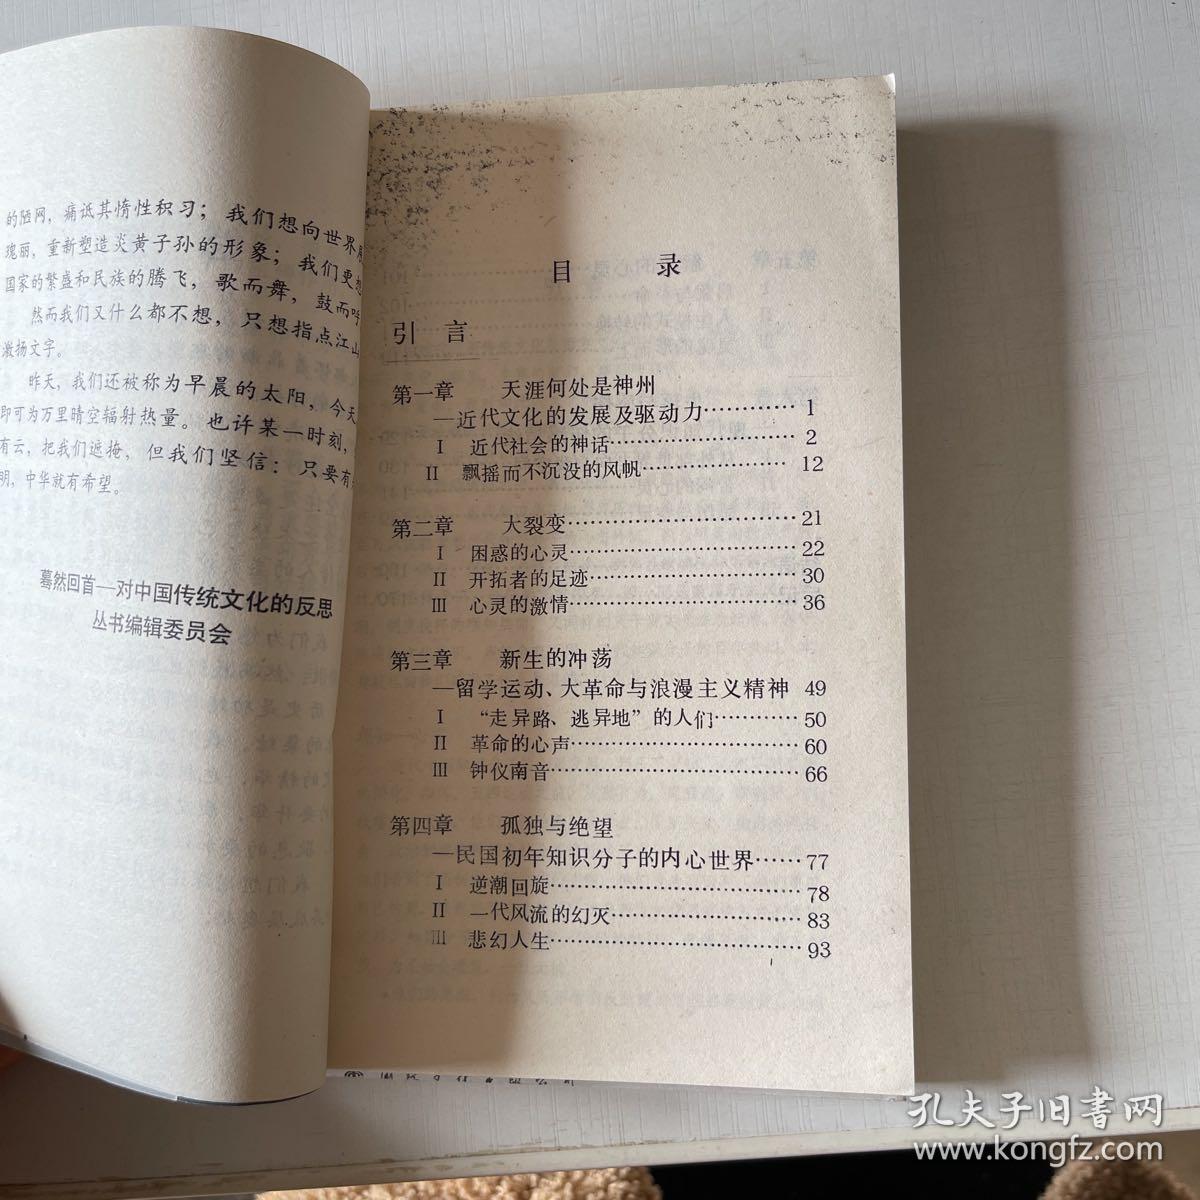 的陋网，痛诋其惰性积习；我们想向世界展
瑰丽，重新塑造炎黄子孙的形象；我们更想
国家的繁盛和民族的腾飞，歌而舞，鼓而呼
然而我们又什么都不想，只想指点江山
激扬文字。
昨天，我们还被称为早晨的太阳，今天
即可为万里晴空辐射热量。也许某一时刻，
有云，把我们遮掩，但我们坚信：只要有
明，中华就有希望。
蓦然回首—对中国传统文化的反思
丛书编辑委员会
目 录
引 言
第一章 天涯何处是神州
—近代文化的发展及驱动力…………1
Ⅰ 近代社会的神话……………………2
Ⅱ 飘摇而不沉没的风帆………………12
第二章 大裂变…………………………21
Ⅰ 困惑的心灵…………………………22
Ⅱ 开拓者的足迹………………………30
Ⅲ 心灵的激情…………………………36
第三章 新生的冲荡
—留学运动、大革命与浪漫主义精神 49
Ⅰ “走异路、逃异地”的人们…………50
Ⅱ 革命的心声…………………………60
Ⅲ 钟仪南音……………………………66
第四章 孤独与绝望
—民国初年知识分子的内心世界……77
Ⅰ 逆潮回旋……………………………78
Ⅱ 一代风流的幻灭……………………83
Ⅲ 悲幻人生……………………………93
孔夫子旧书网
www.kongfz.com